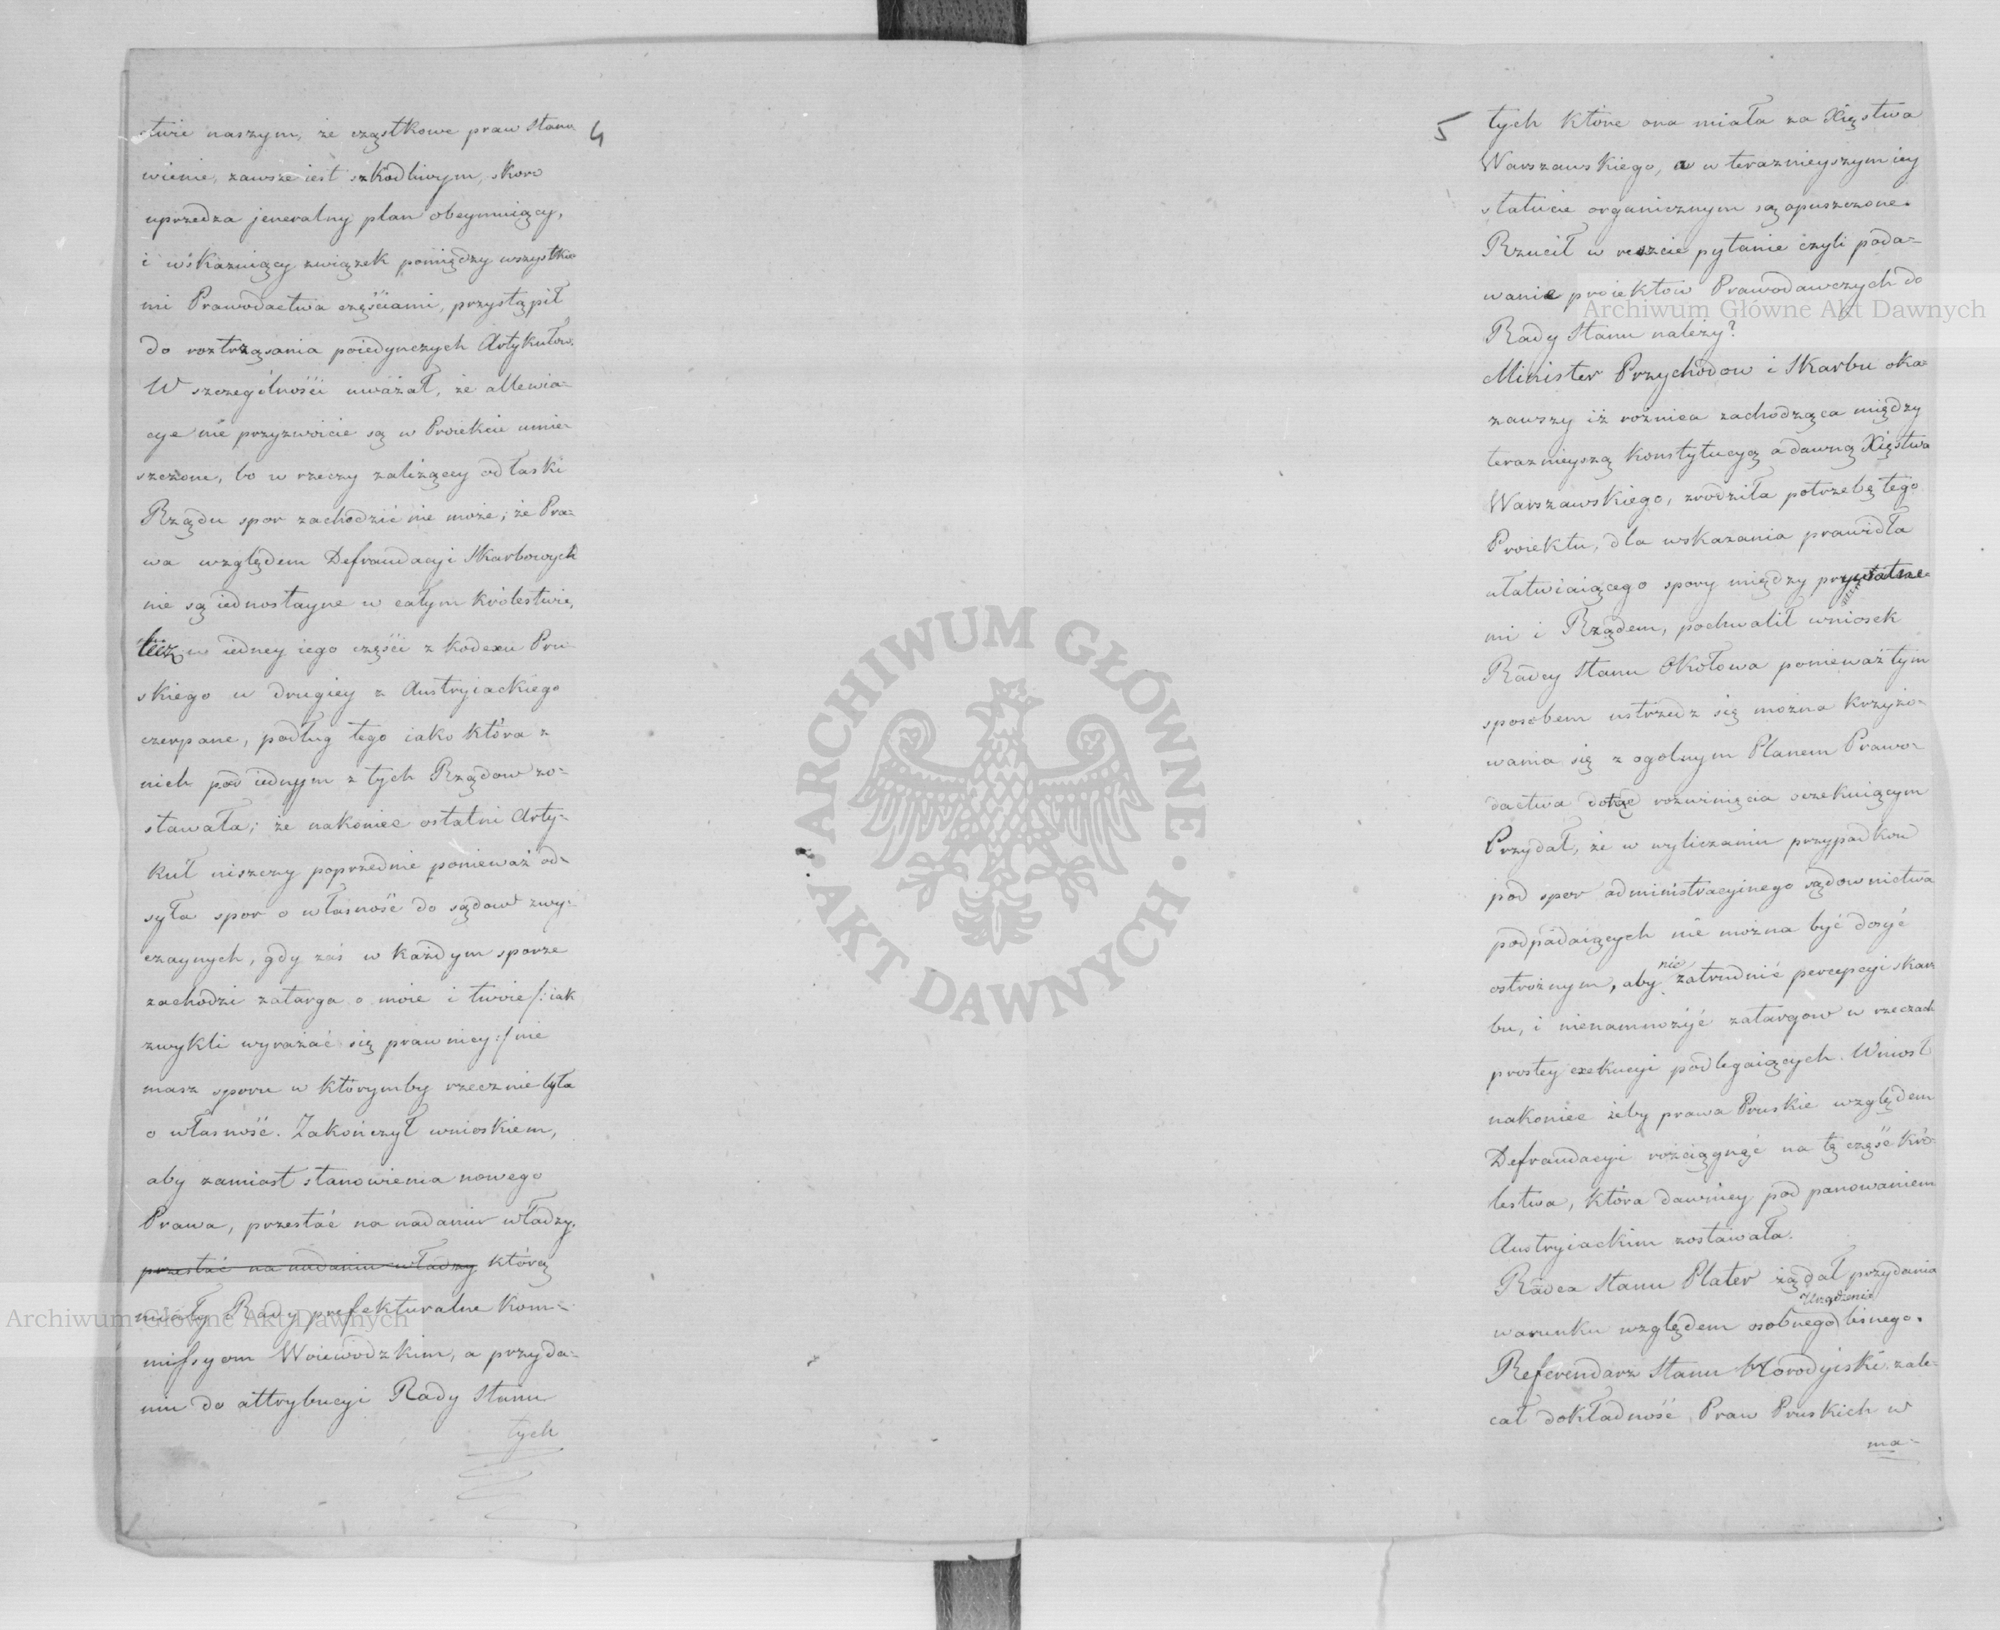 4
stwie naszym, że cząstkowe praw stano
wienie, zawsze iest szkodliwym, skoro
uprzedza jeneralny plan obeymuiący,
i wskazuiący związek pomiędzy wszystkie
mi Prawodactwa częściami, przystąpił
do roztrząsania poiedynczych Artykułow.
W szczegolności uważał, że allewia-
cye nie przyzwoicie są w Proiekcie umie-
szczone, bo w rzeczy zależącey od łaski
Rządu spor zachodzić nie może; że Pra-
wa względem Defraudacyi Skarbowych
nie są iednostayne w całym Królestwie,
lecz w iedney iego części z kodexu Pru-
skiego w drugiey z Austryiackiego
czerpane, podług tego iako która z
nich pod iednym z tych Rządow zo-
stawała; że nakoniec ostatni Arty-
kuł niszczy poprzednie ponieważ od-
syła spor o własność do sądow zwy-
czaynych, gdy zaś w każdym sporze
zachodzi zatarga o moie i twoie /: iak
zwykli wyrażać się prawnicy :/ nie
masz sporu w którymby rzecz nie była
o własność. Zakończył wnioskiem,
aby zamiast stanowienia nowego
Prawa, przestać na nadaniu władzy,
przestać na nadaniu władzy którą
miały Rady prefekturalne Kom-
missyom Woiewodzkim, a przyda-
niu do attrybucyi Rady Stanu
tych
5
tych które ona miała za Xięstwa
Warszawskiego, a w teraznieyszym iey
statucie organicznym są opuszczone.
Rzucił w reszcie pytanie czyli poda-
wanie proiektow Prawodawczych do
Rady Stanu należy?
Minister Przychodow i Skarbu oka-
zawszy iż rożnica zachodząca między
teraznieyszą konstytucyą a dawną Xięstwa
Warszawskiego, zrodziła potrzebę tego
Proiektu, dla wskazania prawidła
ułatwiaiącego spory między prywatne-
mi i Rządem, pochwalił wniosek
Radcy Stanu Okołowa ponieważ tym
sposobem ustrzedz się można krzyżo-
wania się z ogolnym Planem Prawo-
dactwa dotąd rozwinięcia oczekuiącym
Przydał, że w wyliczaniu przypadkow
pod spor administracyinego sądownictwa
podpadaiących nie można być dosyć
ostrożnym, aby nie zatrudnić percepcyi skar
bu, i nienamnożyć zatargow w rzeczach
prostey exekucyi podlegaiących. Wniosł
nakoniec żeby prawa Pruskie względem
Defraudacyi rozciągnąć na tę część kró-
lestwa, która dawniey pod panowaniem
Austryiackim zostawała.
Radca Stanu Plater żądał przydania
warunku względem osobnego Urządzenia lesnego.
Referendarz Stanu Horodyiski zale-
cał dokładność Praw Pruskich w
ma-
Archiwum Główne Akt Dawnych
Archiwum Główne Akt Dawnych
ARCHIWUM GŁÓWNE
AKT DAWNYCH